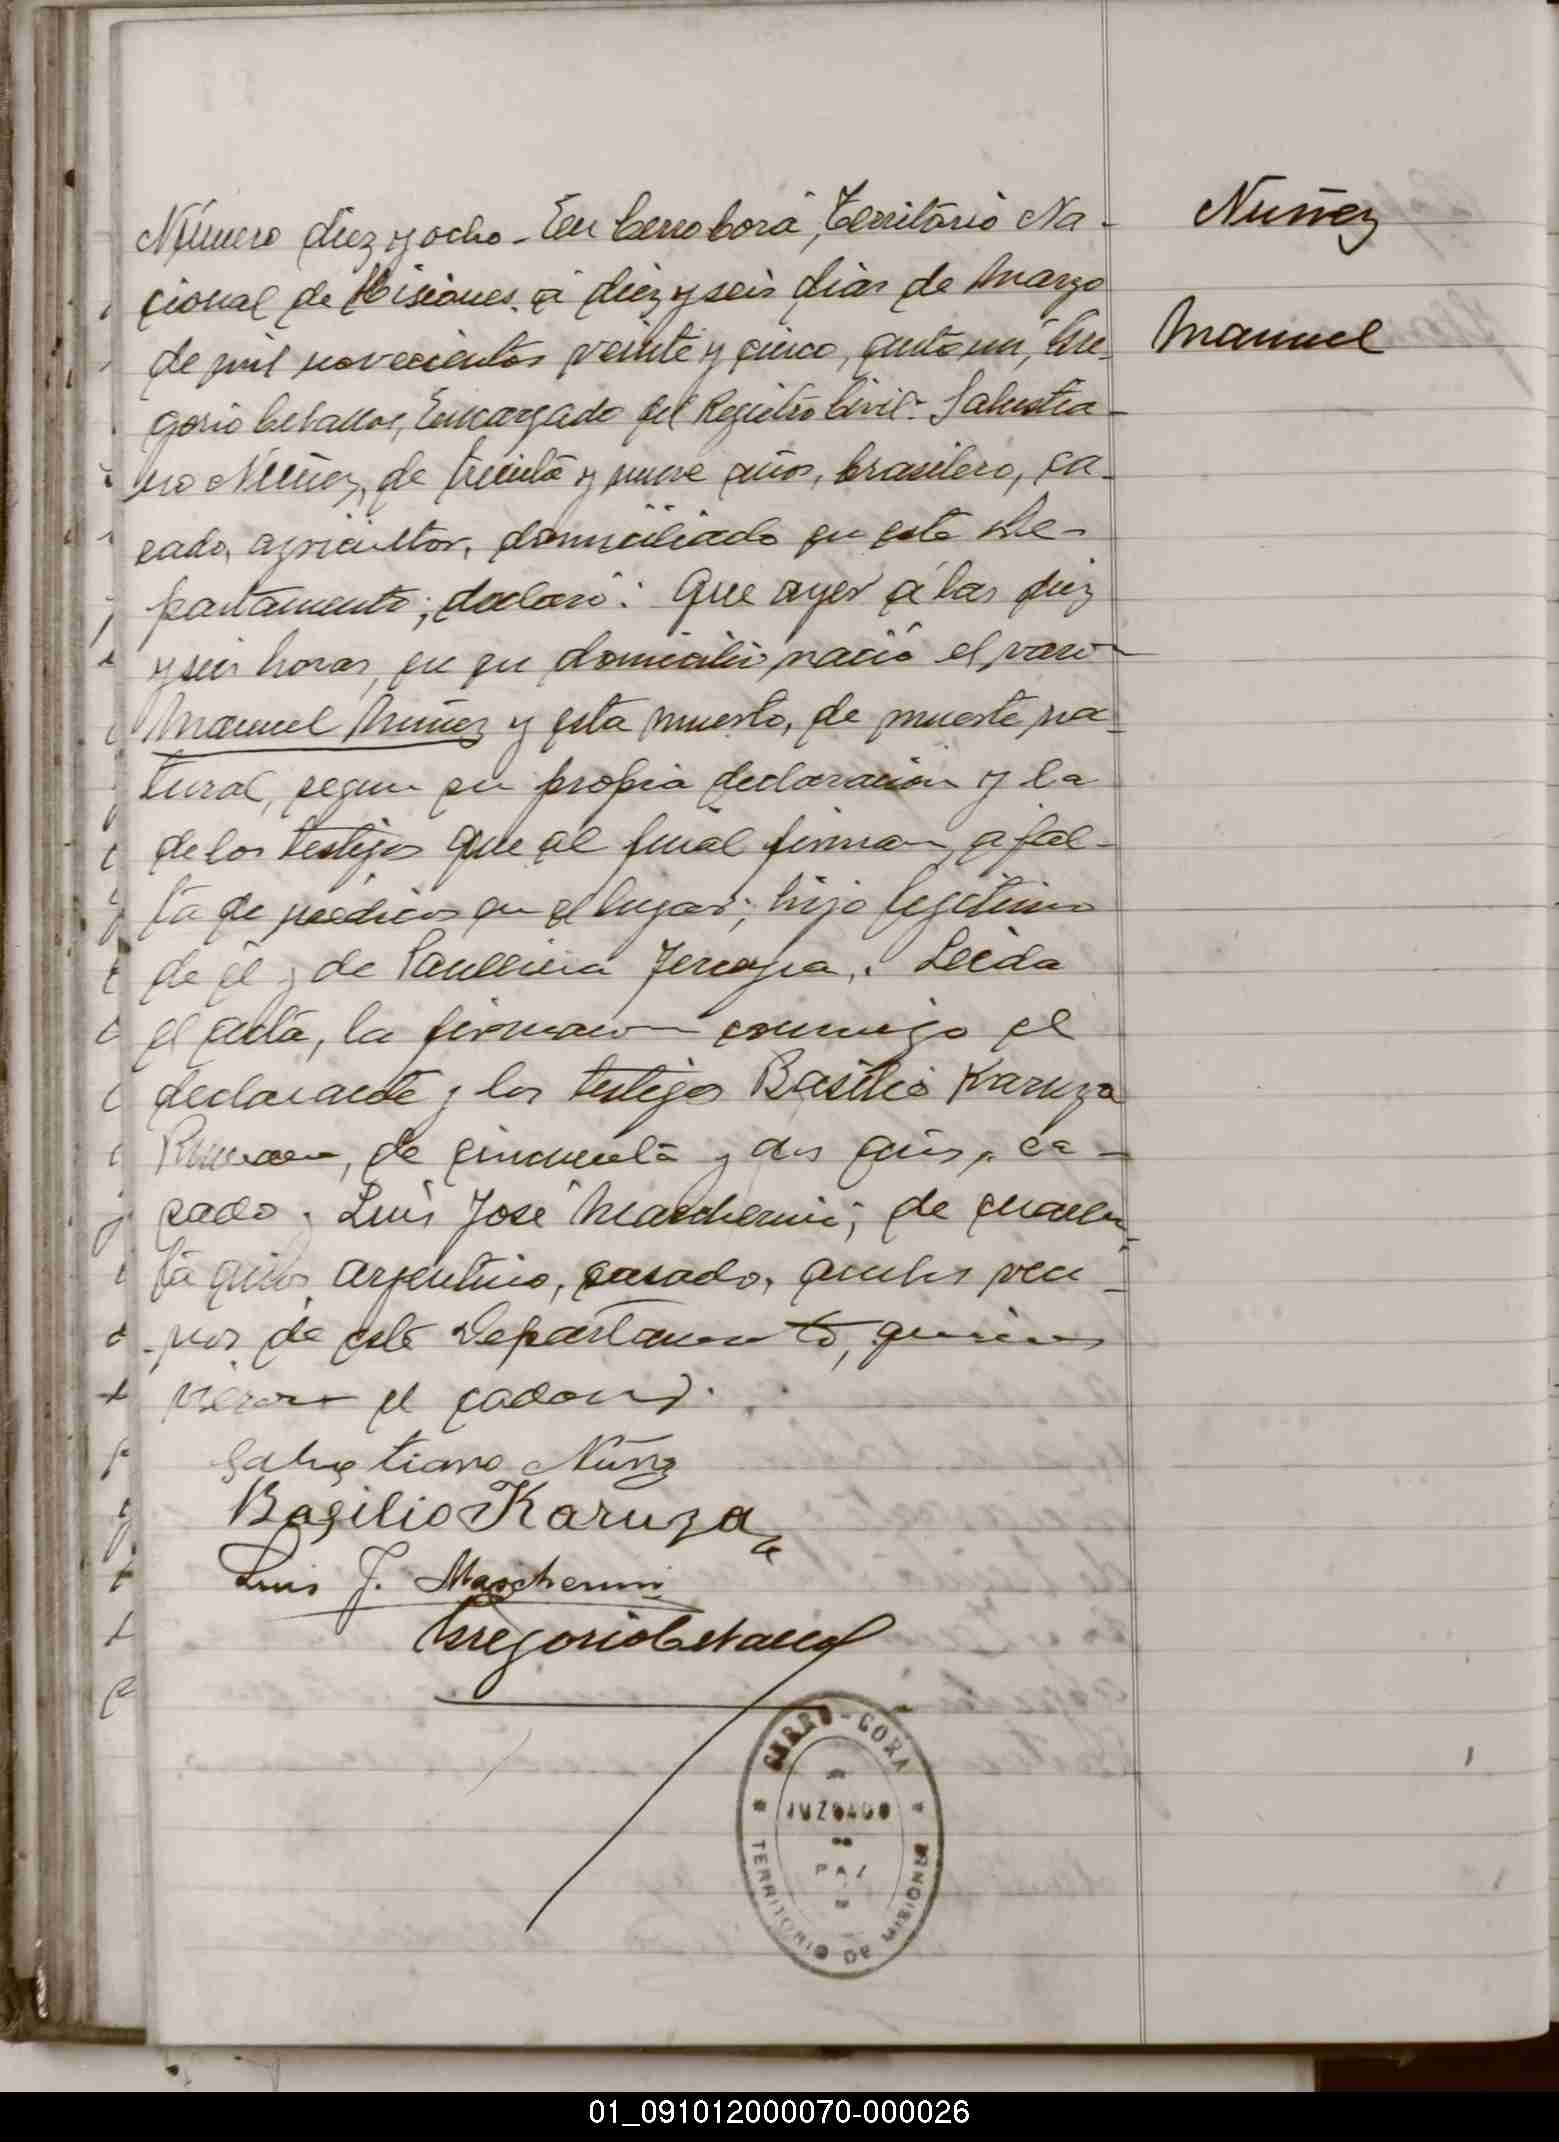 Nuñez
Manuel
Número diez y ocho - En Cerro Corá, Territorio Na-
cional de Misiones, á diez y seis dias de Marzo
de mil novecientos veinte y cinco, ante mí, Gre-
gorio Cevallos, Encargado del Registro Civil - Salustia-
no Núñez, de treinta y nueve años, brasilero, ca-
sado, agricultor, domiciliado en este De-
partamento; declaró: Que ayer á las diez
y seis horas, en su domicilio nació el varon
Manuel Nuñez y esta muerto, de muerte na-
tural, segun su propia declaración y la
de los testigos que al final firman, a fal-
ta de médicos en el lugar; hijo legítimo
de él y de Leida
el acta, la firmaron conmigo el
declarante y los testigos Basilio Karuza
de cincuenta y dos años, ca-
sado y Luis José Mascherini; de cuaren-
ta años, argentino, casado, ambos veci-
nos de este Departamento, quienes
vieron el cadaver.
Salustiano Núñz
Basilio Karuza
Luis J. Mascherini
Gregorio Cevallos
CERRO-CORA
JUZGADO
DE
PAZ
TERRITORIO DE MISIONES
01_091012000070-000026